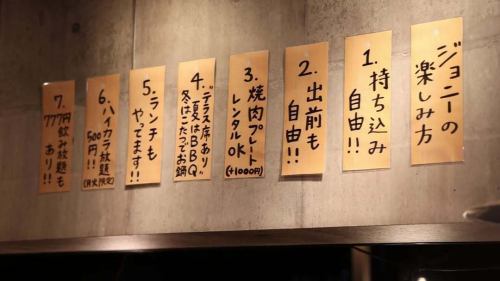 ジョニーの
楽しみ方
1. 持ち込み
自由!!
2. 出前も
自由!!
3. 焼肉プレート
レンタル
OK!
(+1000円)
4. テラス席あり
夏はBBQ
冬はこたつでお鍋
5. ランチも
やってます!!
6. ハイカラ放題
500円!!
(月火限定)
7. 777円飲み放題も
あり!!